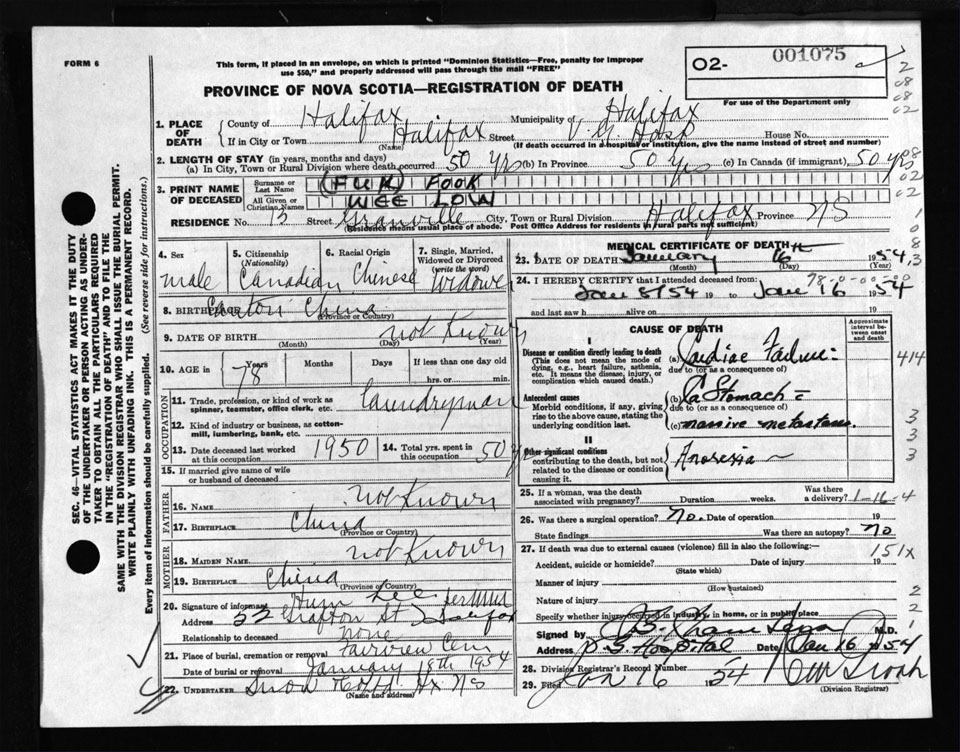 FORM 6
This form, if placed in an envelope, on which is printed "Dominion Statistics—Free, penalty for improper
use $50," and properly addressed will pass through the mail "FREE"
PROVINCE OF NOVA SCOTIA—REGISTRATION OF DEATH
O2- 001075
For use of the Department only
2
08
08
02
1. PLACE OF DEATH
County of Halifax Municipality of Halifax
If in City or Town Halifax Street V. G. Hosp House No.
(Name) (If death occurred in a hospital or institution, give the name instead of street and number)
2. LENGTH OF STAY (in years, months and days)
(a) In City, Town or Rural Division where death occurred 50 yrs (b) In Province 50 yrs (c) In Canada (if immigrant) 50 yrs
3. PRINT NAME OF DECEASED
Surname or Last Name (FUK) FOOK
All Given or Christian Names WEE LOW
RESIDENCE No. 13 Street Granville City, Town or Rural Division Halifax Province NS
(Residence means usual place of abode. Post Office Address for residents in rural parts not sufficient)
4. Sex
male
5. Citizenship (Nationality)
Canadian
6. Racial Origin
Chinese
7. Single, Married, Widowed or Divorced (write the word)
Widowe
8. BIRTHPLACE Canton China
(Province or Country)
9. DATE OF BIRTH not Known
(Month) (Day) (Year)
10. AGE in Years Months Days If less than one day old
78 hrs. or min.
OCCUPATION
11. Trade, profession, or kind of work as spinner, teamster, office clerk, etc. Laundryman
12. Kind of industry or business, as cotton-mill, lumbering, bank, etc.
13. Date deceased last worked at this occupation 1950
14. Total yrs. spent in this occupation 50 yrs
15. If married give name of wife or husband of deceased
FATHER
16. Name not Known
17. Birthplace China
(Province or Country)
MOTHER
18. MAIDEN NAME not Known
19. BIRTHPLACE China
(Province or Country)
20. Signature of informant Hum Lee
Address 52 Grafton St Halifax
Relationship to deceased none
21. Place of burial, cremation or removal Fairview Cem
Date of burial or removal January 18th 1954
22. UNDERTAKER Snow Hx NS
(Name and address)
MEDICAL CERTIFICATE OF DEATH
23. DATE OF DEATH January 16th 1954
(Month) (Day) (Year)
24. I HEREBY CERTIFY that I attended deceased from:
Jan 8/54 19 to Jan 16 1954
and last saw h alive on 19
CAUSE OF DEATH
Approximate interval between onset and death
I
Disease or condition directly leading to death
(This does not mean the mode of dying, e.g., heart failure, asthenia, etc. It means the disease, injury, or complication which caused death.
(a) Cardiac Failure
due to (or as a consequence of)
414
Antecedent causes
Morbid conditions, if any, giving rise to the above cause, stating the underlying condition last.
(b) Ca Stomach
due to (or as a consequence of)
(c) massive metastases.
II
Other significant conditions
contributing to the death, but not related to the disease or condition causing it.
Anorexia
25. If a woman, was the death associated with pregnancy? Duration weeks. Was there a delivery? 1-16-4
26. Was there a surgical operation? No. Date of operation 19
State findings Was there an autopsy? No
27. If death was due to external causes (violence) fill in also the following:— 151x
Accident, suicide or homicide? Date of injury 19
(State which)
Manner of injury
(How sustained)
Nature of injury
Specify whether injury occurred in industry, in home, or in public place
Signed by M.D.
Address Hospital Date Jan 16 1954
28. Division Registrar's Record Number
29. Filed Jan 16 1954
(Division Registrar)
SEC. 46—VITAL STATISTICS ACT MAKES IT THE DUTY
OF THE UNDERTAKER OR PERSON ACTING AS UNDER-
TAKER TO OBTAIN ALL THE PARTICULARS REQUIRED
IN THE "REGISTRATION OF DEATH" AND TO FILE THE
SAME WITH THE DIVISION REGISTRAR WHO SHALL ISSUE THE BURIAL PERMIT.
WRITE PLAINLY WITH UNFADING INK. THIS IS A PERMANENT RECORD.
Every item of information should be carefully supplied. (See reverse side for instructions.)